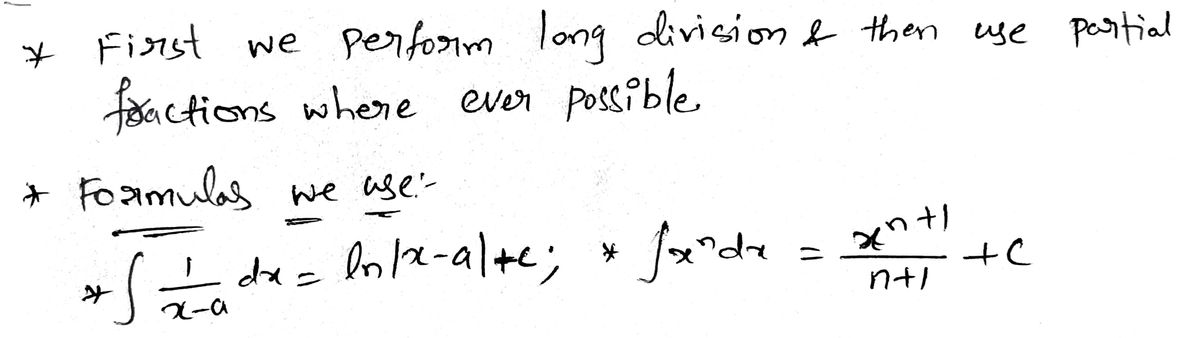 * First we perform long division & then use partial
fractions where ever possible.
* Formulas we use:-
* ∫ 1/(x-a) dx = ln|x-a|+c; * ∫xⁿdx = xⁿ⁺¹/(n+1) + C